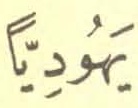 يَهُودِيّاً